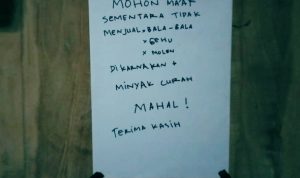 MOHON MA'AF
SEMENTARA TIDAK
MENJUAL × BALA-BALA
× GEHU
× MOLEN
DIKARNAKAN +
MINYAK CURAH
MAHAL !
TERIMA KASIH